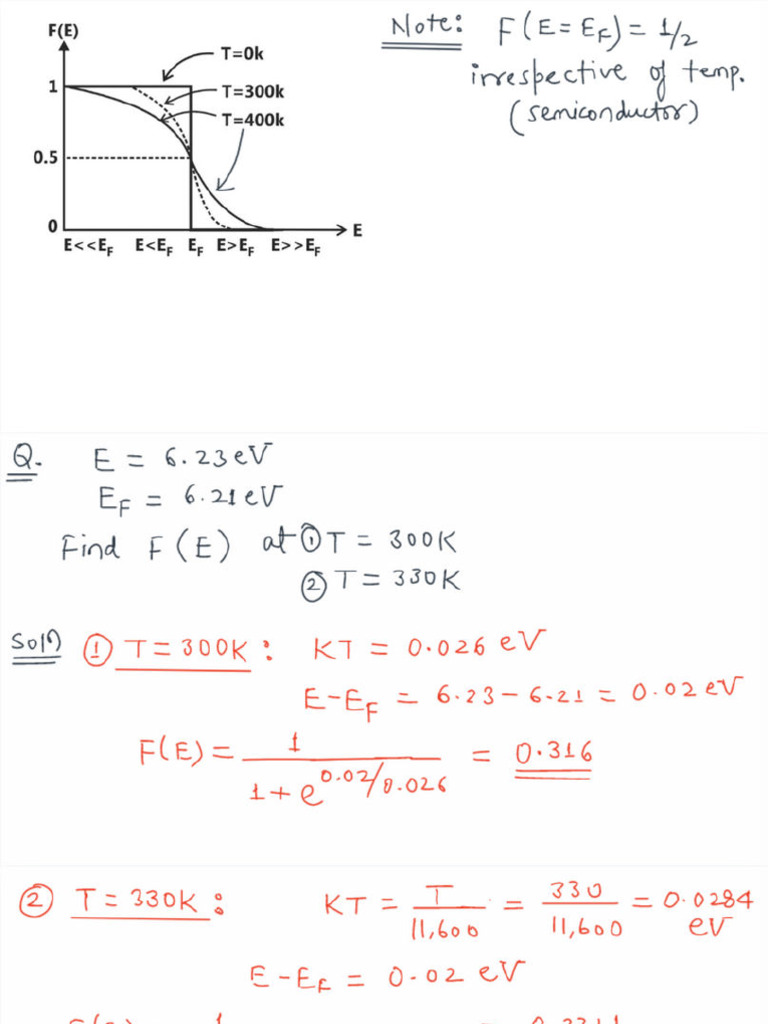 F(E)
T=0k
1
T=300k
T=400k
0.5
0
E
E<<E_F E<E_F E_F E>E_F E>>E_F
Note: F(E=E_F) = 1/2
irrespective of temp.
(semiconductor)
Q. E = 6.23eV
E_F = 6.21eV
Find F(E) at ① T = 300K
② T = 330K
Soln ① T = 300K : KT = 0.026 eV
E-E_F = 6.23-6.21 = 0.02 eV
F(E) = 1/(1+e^(0.02/0.026)) = 0.316
② T = 330K : KT = T/11,600 = 330/11,600 = 0.0284 eV
E-E_F = 0.02 eV